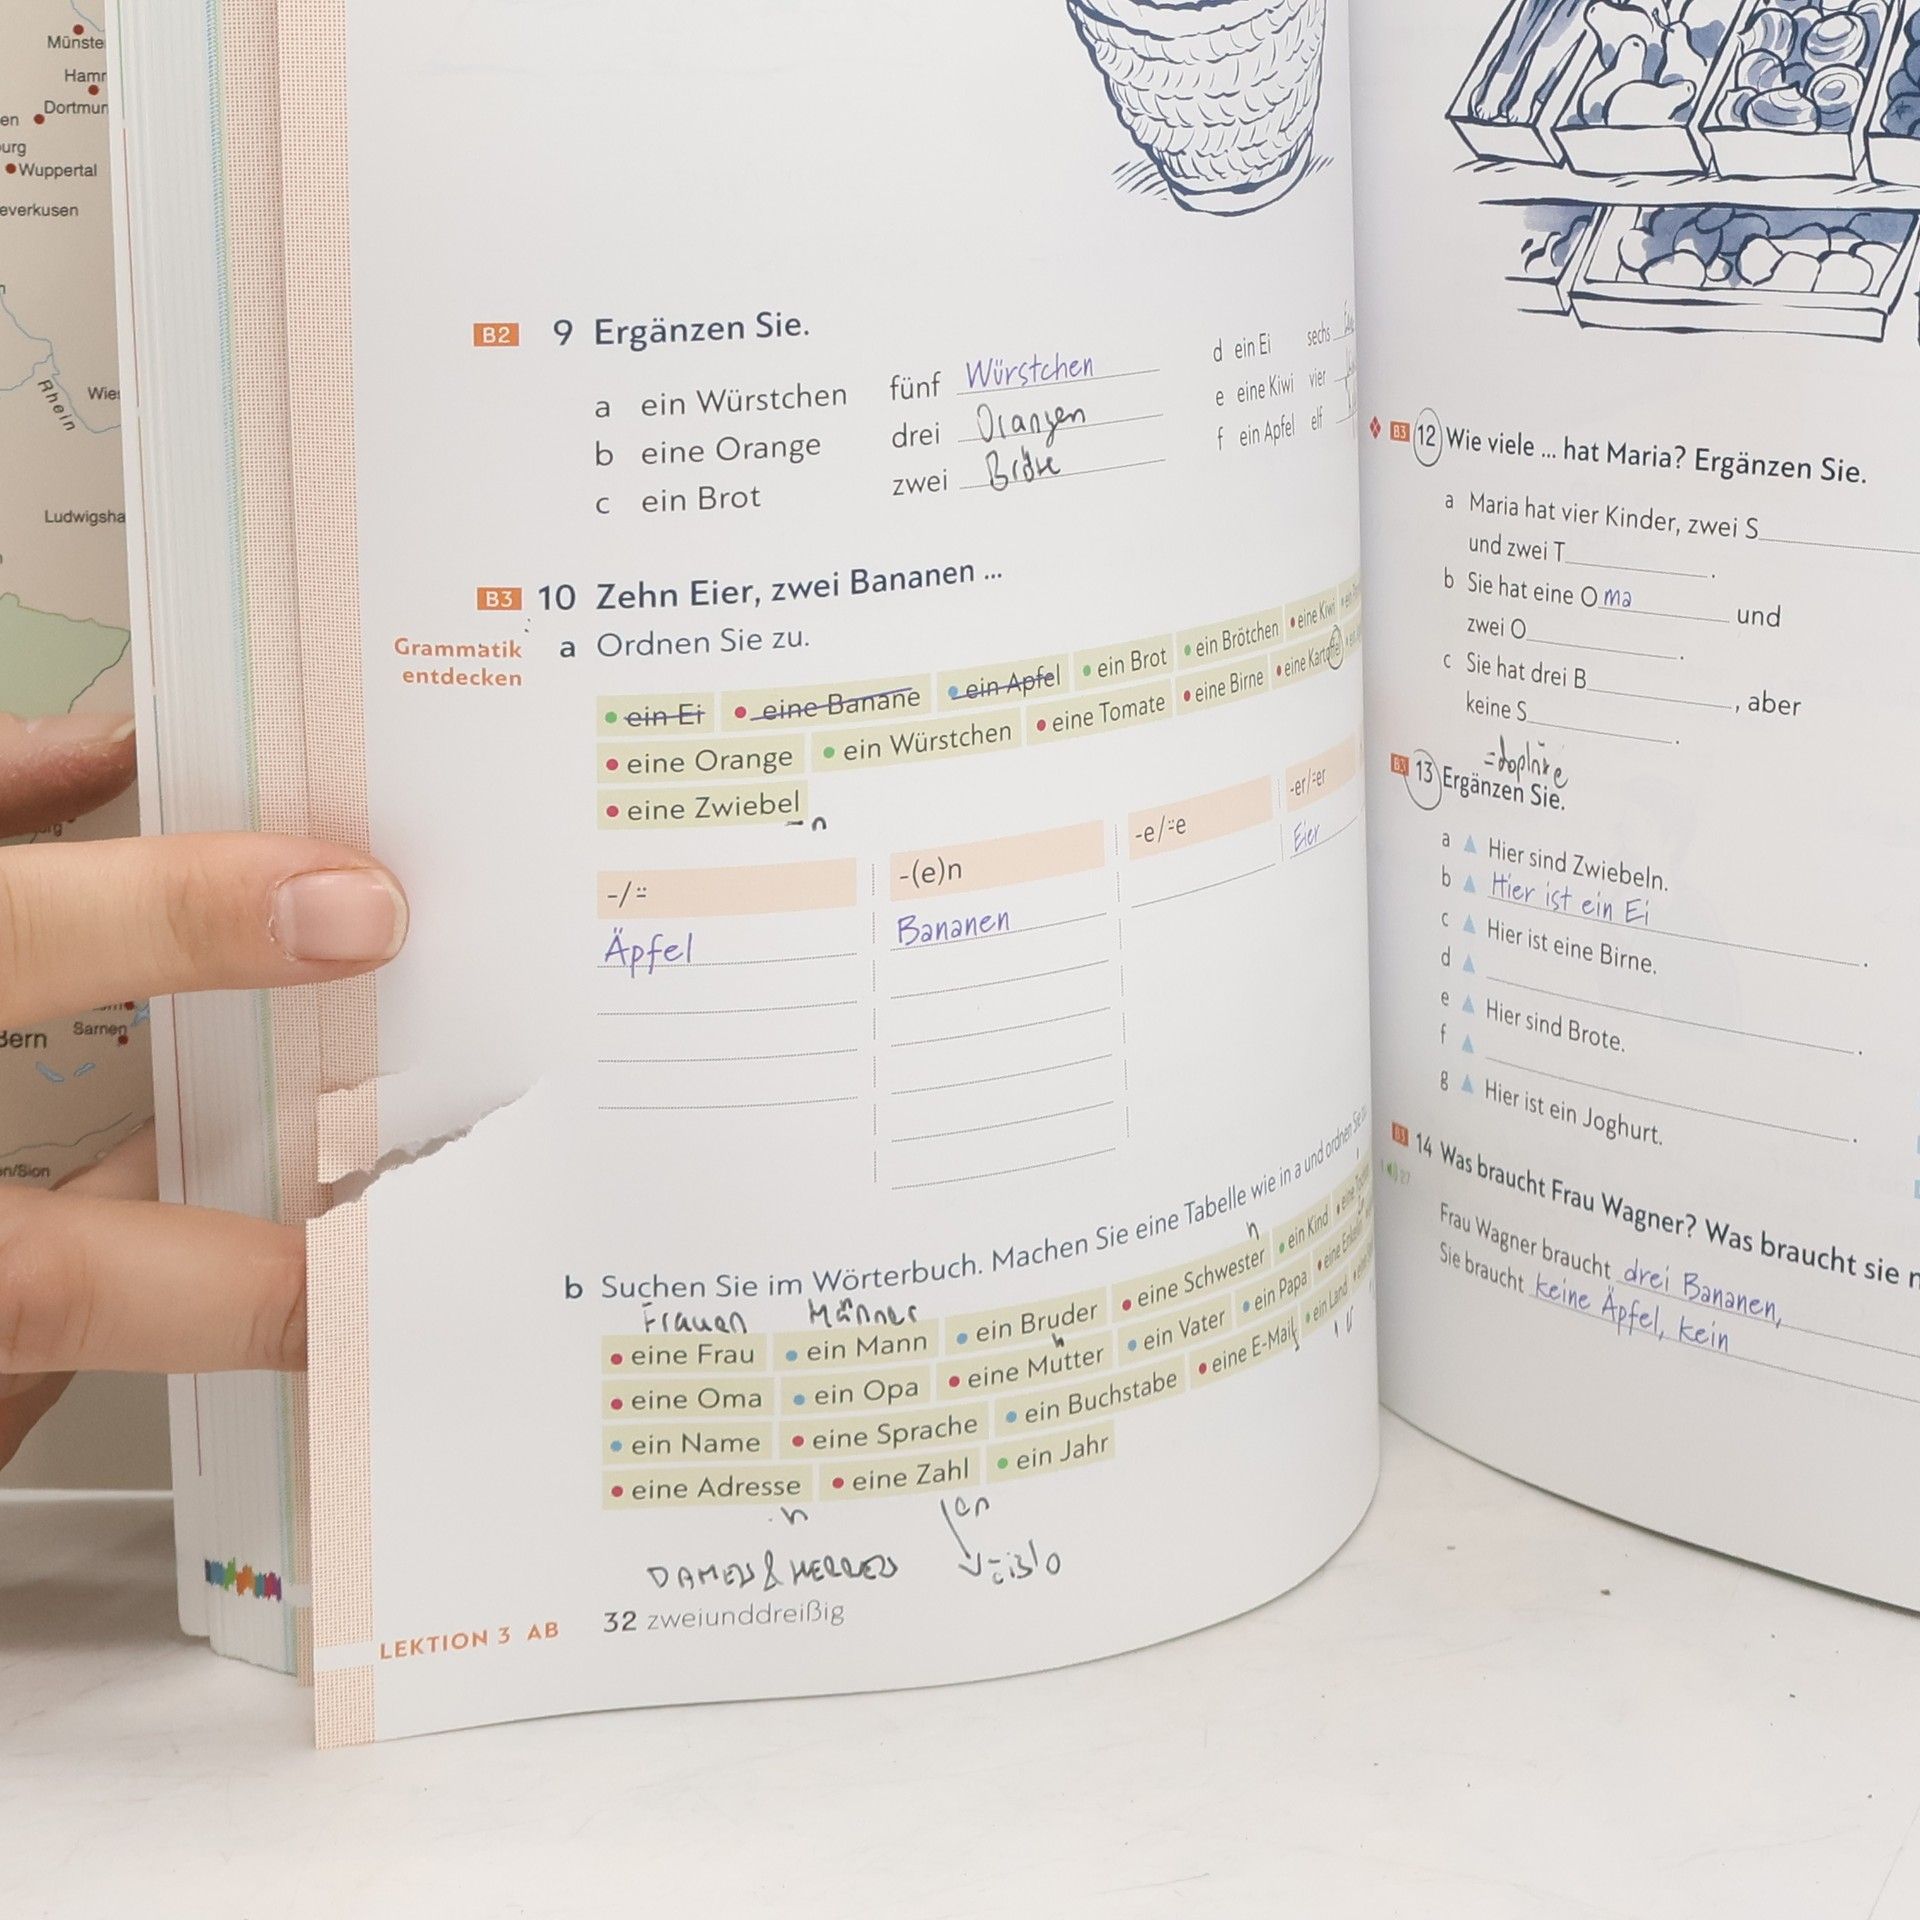 Münste
Hamr
Dortmur
en
urg
Wuppertal
everkusen
Rhein
Wie
Ludwigsha
Bern
Sarnen
n/Sion
B2 9 Ergänzen Sie.
a ein Würstchen fünf Würstchen
b eine Orange drei Orangen
c ein Brot zwei Bröte
d ein Ei sechs
e eine Kiwi vier
f ein Apfel elf
B3 10 Zehn Eier, zwei Bananen ...
Grammatik entdecken
a Ordnen Sie zu.
ein Ei eine Banane ein Apfel ein Brot ein Brötchen eine Kiwi
eine Orange ein Würstchen eine Tomate eine Birne eine Kartoffel
eine Zwiebel
-n
-/¨ -(e)n -e/¨e -er/¨er
Äpfel Bananen Eier
b Suchen Sie im Wörterbuch. Machen Sie eine Tabelle wie in a und ordnen Sie zu
Frauen Männer n
eine Frau ein Mann ein Bruder eine Schwester ein Kind
eine Oma ein Opa eine Mutter ein Vater ein Papa
ein Name eine Sprache ein Buchstabe eine E-Mail ein Land
eine Adresse eine Zahl ein Jahr
n en
DAMEN & HERREN = číslo
LEKTION 3 AB 32 zweiunddreißig
B3 12 Wie viele ... hat Maria? Ergänzen Sie.
a Maria hat vier Kinder, zwei S
und zwei T .
b Sie hat eine Oma und
zwei O .
c Sie hat drei B , aber
keine S .
=doplňte
B3 13 Ergänzen Sie.
a Hier sind Zwiebeln.
b Hier ist ein Ei .
c Hier ist eine Birne.
d .
e Hier sind Brote.
f .
g Hier ist ein Joghurt.
B3 14 Was braucht Frau Wagner? Was braucht sie n
27
Frau Wagner braucht drei Bananen,
Sie braucht keine Äpfel, kein